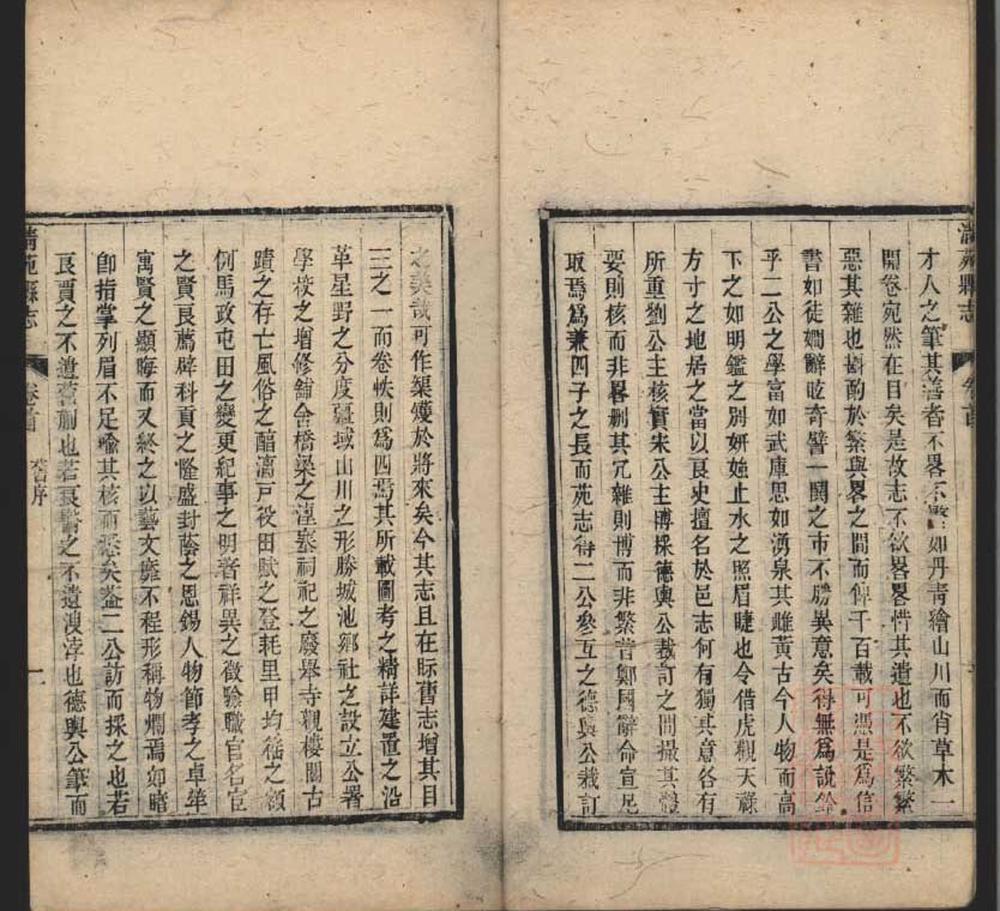 清苑縣志
卷首
才人之筆其善者不畧不繁如丹青繪山川而肖草木一
開卷宛然在目矣是故志不欲畧畧惜其遺也不欲繁繁
惡其雜也斟酌於繁與畧之間而俾千百載可憑是為信
書如徒嫺辭眩奇譬一鬨之市不勝異意矣得無為說鈴
乎二公之學富如武庫思如湧泉其雌黃古今人物而高
下之如明鑑之別妍媸止水之照眉睫也令借虎觀天祿
方寸之地居之當以良史擅名於邑志何有獨其意各有
所重劉公主核實宋公主博採德輿公裁訂之間撮其體
要則核而非畧刪其冗雜則博而非繁昔鄭國辭命宣尼
取焉為兼四子之長而苑志得二公參互之德輿公裁訂
之美哉可作榘矱於將來矣今其志且在眎舊志增其目
三之一而卷帙則為四焉其所載圖考之精詳建置之沿
革星野之分度疆域山川之形勝城池鄉社之設立公署
學校之增修舖舍橋梁之湮塞祠祀之廢舉寺觀樓閣古
蹟之存亡風俗之醕漓戸役田賦之登耗里甲均徭之額
例馬政屯田之變更紀事之明著祥異之徵驗職官名宦
之賢良薦辟科貢之隆盛封蔭之恩錫人物節孝之卓犖
寓賢之顯晦而又終之以藝文靡不程形稱物爛焉如暗
卽指掌列眉不足喻其核而悉矣葢二公訪而採之也若
良賈之不遺蒼蒯也若良醫之不遺溲浡也德輿公筆而
清苑縣志
卷首
舊序
二